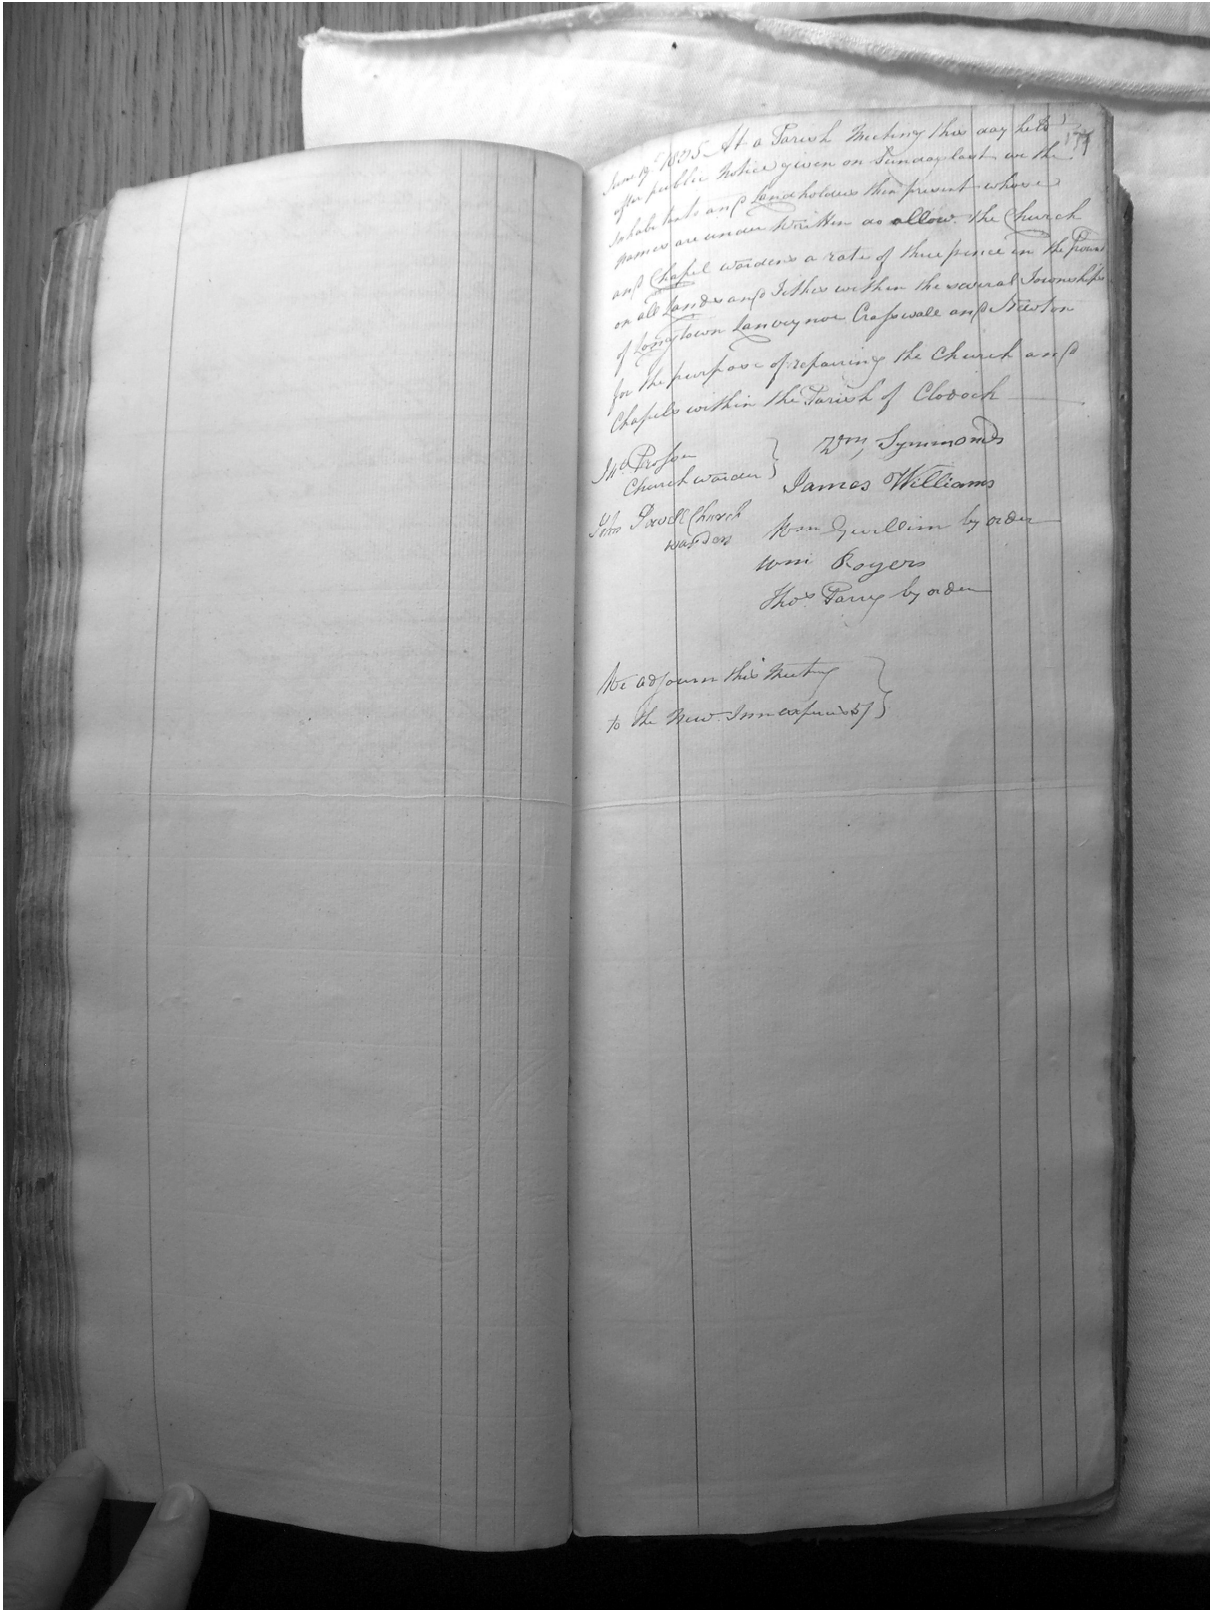 June 19th 1825 At a Parish Meeting this day held
after public Notice given on Sunday last we the
Inhabitants and Landholders then present whose
names are under written do allow the Church
and Chapel wardens a rate of three pence in the pound
on all Lands and Tithes within the several Townships
of Longtown Lanveynoe Crasswall and Newton
for the purpose of repairing the Church and
Chapels within the Parish of Clodock
Prosser
Church warden
Wm Symmonds
James Williams
John Powell Church
warden
Wm Gwillim by order
Wm Rogers
Thos Parry by order
We adjourn this Meeting
to the New Inn